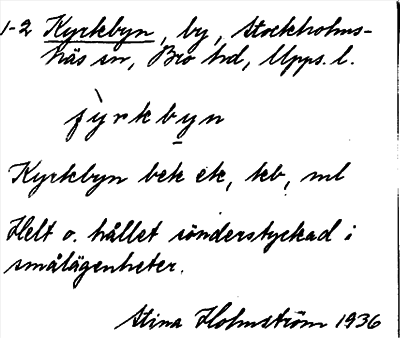 1-2 Kyrkbyn, by, Stockholms-
näs sn, Bro hd, Upps. l.
ȷ̀yrkbyn
Kyrkbyn bek ek, kb, ml
Helt o. hållet sönderstyckad i
smålägenheter.
Stina Holmström 1936